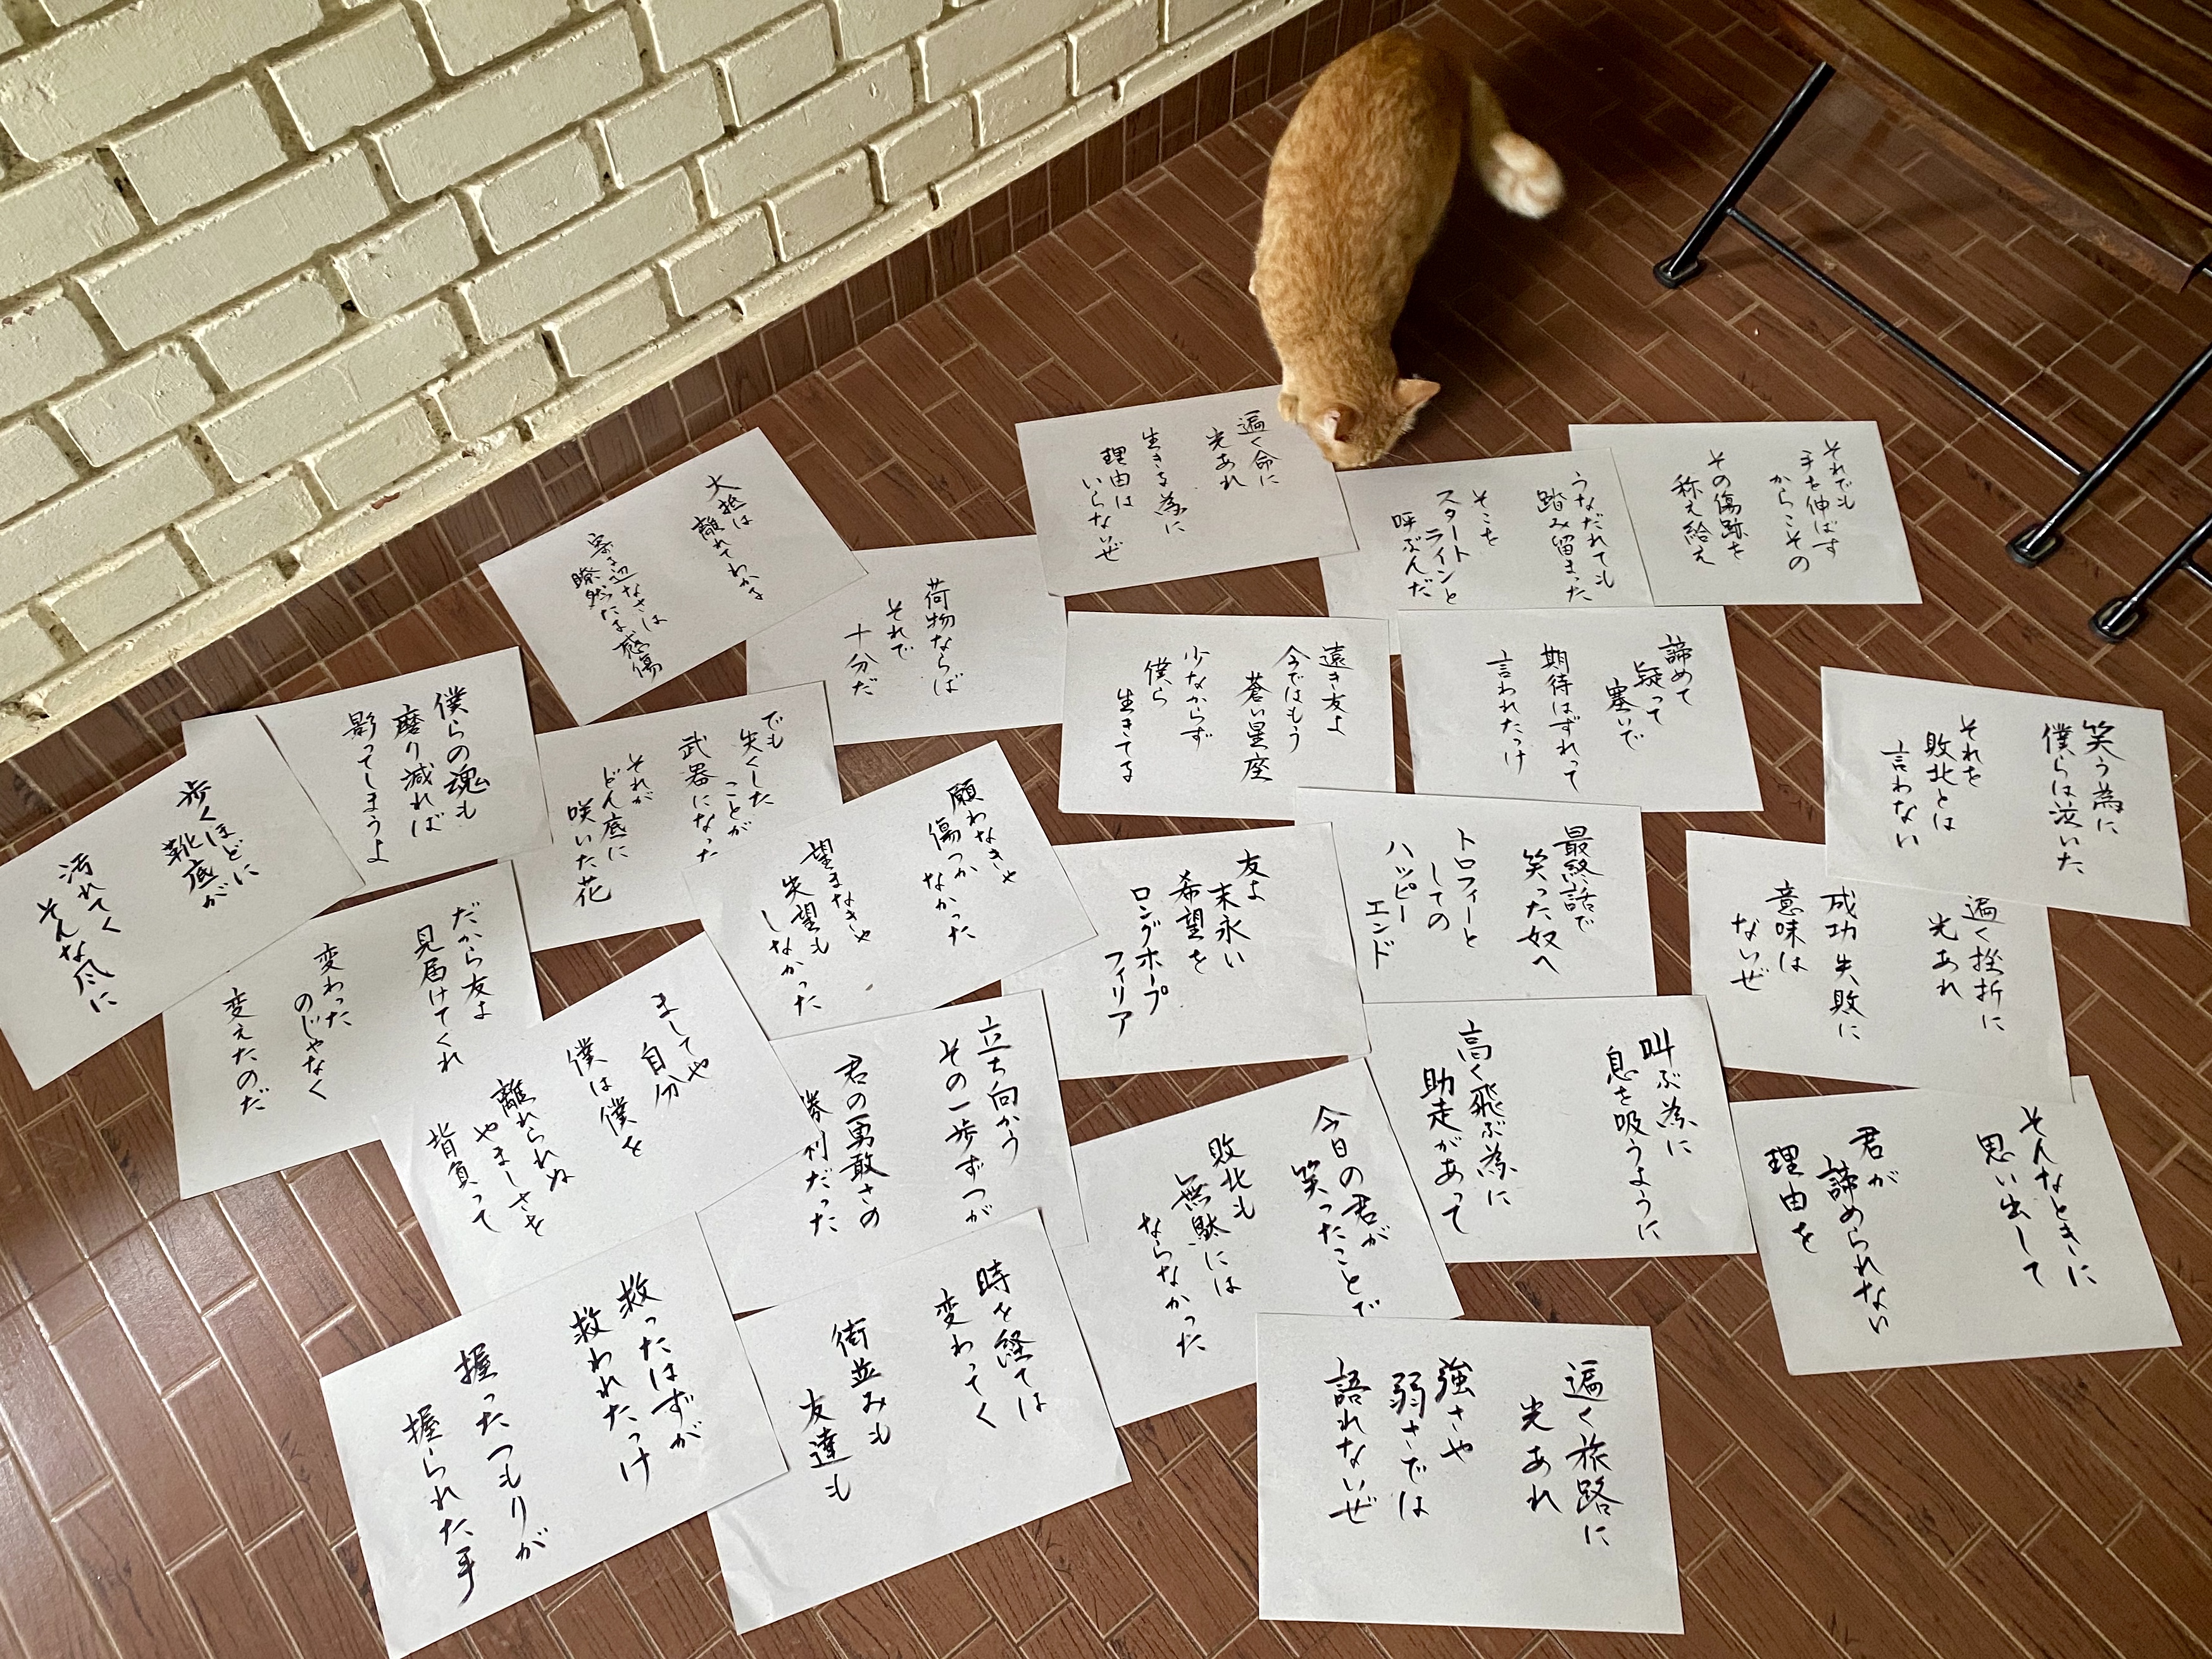 遍く命に
光あれ
生きる為に
理由は
いらないぜ
それでも
手を伸ばす
からこその
その傷跡を
称え給え
うなだれても
踏み留まった
そこを
スタート
ラインと
呼ぶんだ
大抵は
離れてわかる
寄る辺なさは
瞭然たる感傷
荷物ならば
それで
十分だ
遠き友よ
今ではもう
蒼い星座
少なからず
僕ら
生きてる
諦めて
疑って
塞いで
期待はずれって
言われたっけ
笑う為に
僕らは泣いた
それを
敗北とは
言わない
僕らの魂も
磨り減れば
影ってしまうよ
でも
失くした
ことが
武器になった
それが
どん底に
咲いた花
歩くほどに
靴底が
汚れてく
そんな風に
願わなきゃ
傷つか
なかった
望まなきゃ
失望も
しなかった
友よ
末永い
希望を
ロングホープ
フィリア
最終話で
笑った奴へ
トロフィーと
しての
ハッピー
エンド
遍く挫折に
光あれ
成功失敗に
意味は
ないぜ
だから友よ
見届けてくれ
変わった
のじゃなく
変えたのだ
ましてや
自分
僕は僕を
離れられぬ
やましさを
背負って
立ち向かう
その一歩ずつが
君の勇敢さの
勝利だった
今日の君が
笑ったことで
敗北も
無駄には
ならなかった
叫ぶ為に
息を吸うように
高く飛ぶ為に
助走があって
そんなときに
思い出して
君が
諦められない
理由を
救ったはずが
救われたっけ
握ったつもりが
握られた手
時を経ては
変わってく
街並みも
友達も
遍く旅路に
光あれ
強さや
弱さでは
語れないぜ